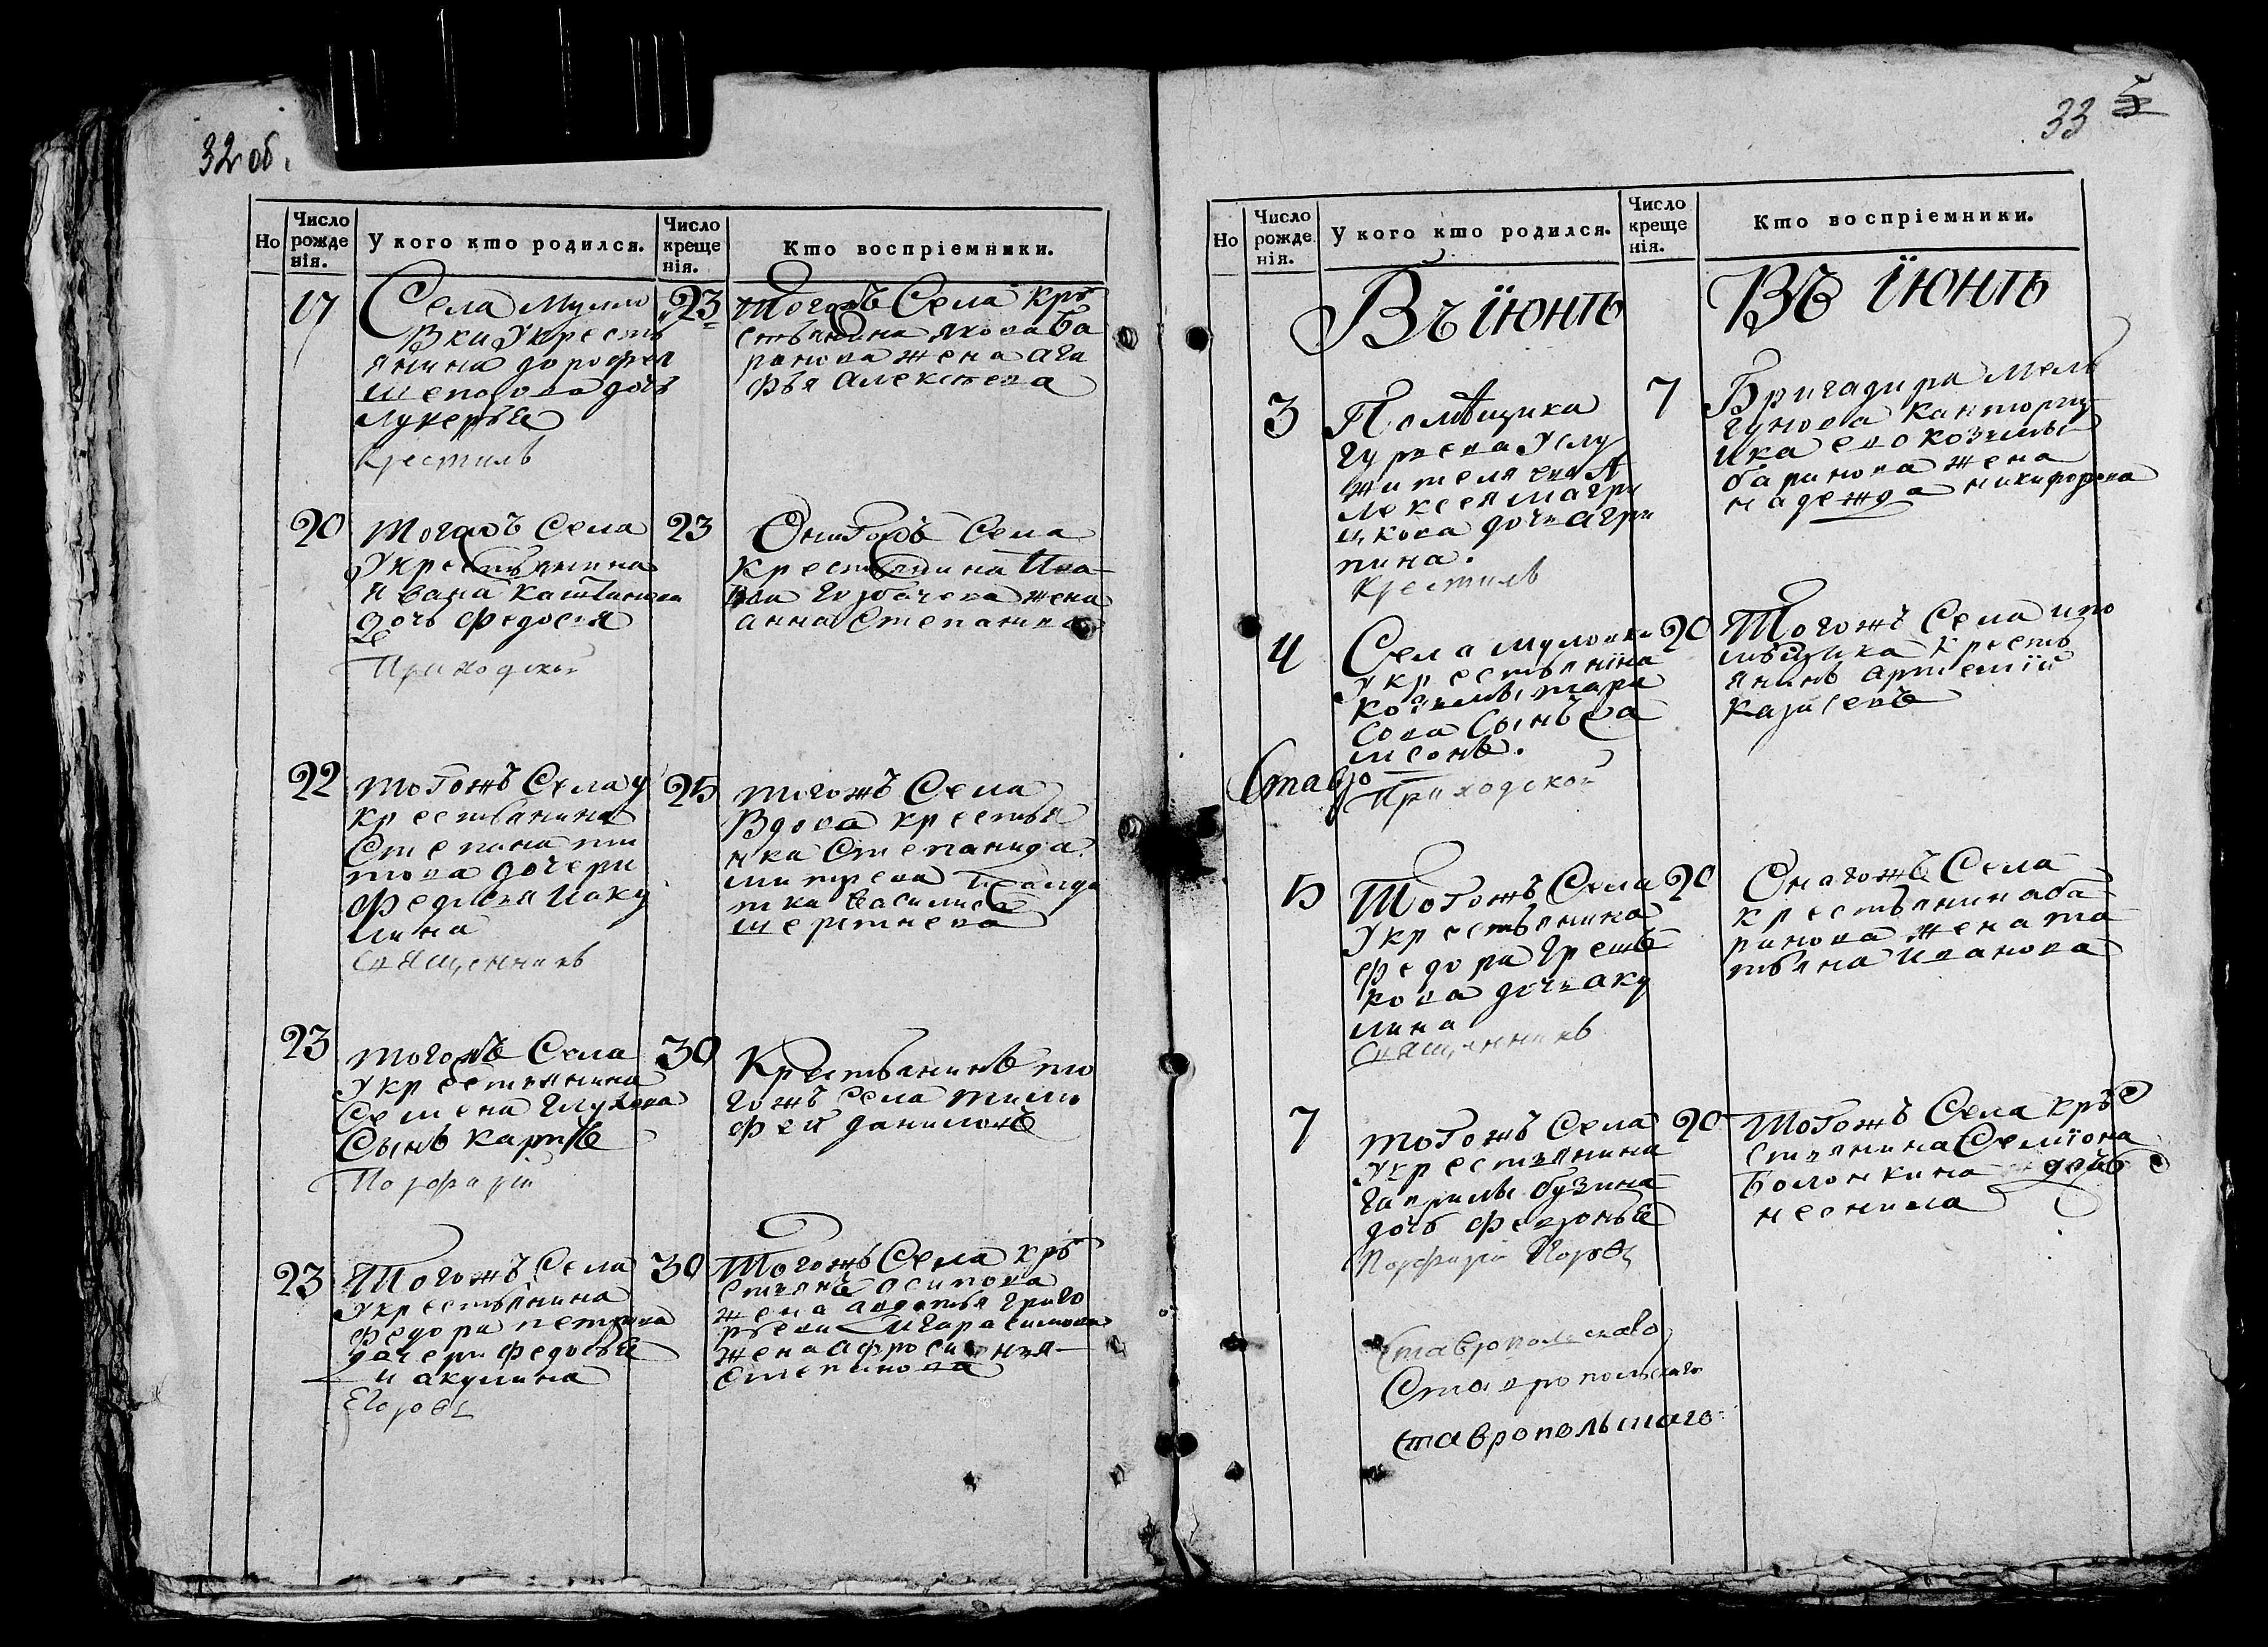 32 об.
Но
Число рожденія.
У кого кто родился.
Число крещенія.
Кто воспріемники.
17
Села Мулло
вки У крестъ
янина дорофея
дочь
лукерья
крестилъ
23
Тогожъ Села кръ
стьянина якова Ба
ранова жена ага
фья алексѣева
20
Тогожъ Села
У крестьянина
ивана
дочь федосья
Приходской
23
Онагожъ Села
крестьянина Ива
на горбачева жена
анна Степанова
22
тогожъ Села у
крестьянина
Степана ти
това дочери
Федосья иаку
лина
священникъ
25
тогожъ Села
Вдова крестья
нка Степанида
василиса
23
тогожъ Села
У крестьянина
Семена глухова
Сынъ карпъ
Порфирій
30
Крестьянинъ то
гожъ Села тимо
фей даниловъ
23
Тогожъ Села
У крестьянина
Федора петрова
дочери Федосья
и акулина
Егоровъ
30
Тогожъ Села кръ
стьянъ осипова
жена авдотья григо
рьева игарасимова
жена афросинья
Степанова
33 5
Но
Число рожденія.
У кого кто родился.
Число крещенія.
Кто воспріемники.
Въ іюнѣ
Въ іюнѣ
3
Помѣщика
У слу
жителя ево А
лексея магри
цкова дочь агри
пина.
крестилъ
7
Бригадира Мель
гунова канторщ
ика ево козьмы
баринова жена
надежда никифорова
4
Села мулловки
У крестьянина
козьмы тара
сова Сынъ са
мсонъ.
Приходской
Ставро
20
Тогожъ Села по
мѣщика кресть
янинъ артемій
5
Тогожъ Села
У крестьянина
Федора грешь
кова дочь аку
лина
Священникъ
20
Онагожъ Села
крестьянина ба
ринова жена та
тьяна иванова
7
тогожъ Села
У крестьянина
гаврилы бузина
дочь февронья
Порфирій
20
Тогожъ Села кръ
стьянина Семіона
Болонкина дочь
неонила
Ставропольскаво
Ставропольскаго
ставропольшаго